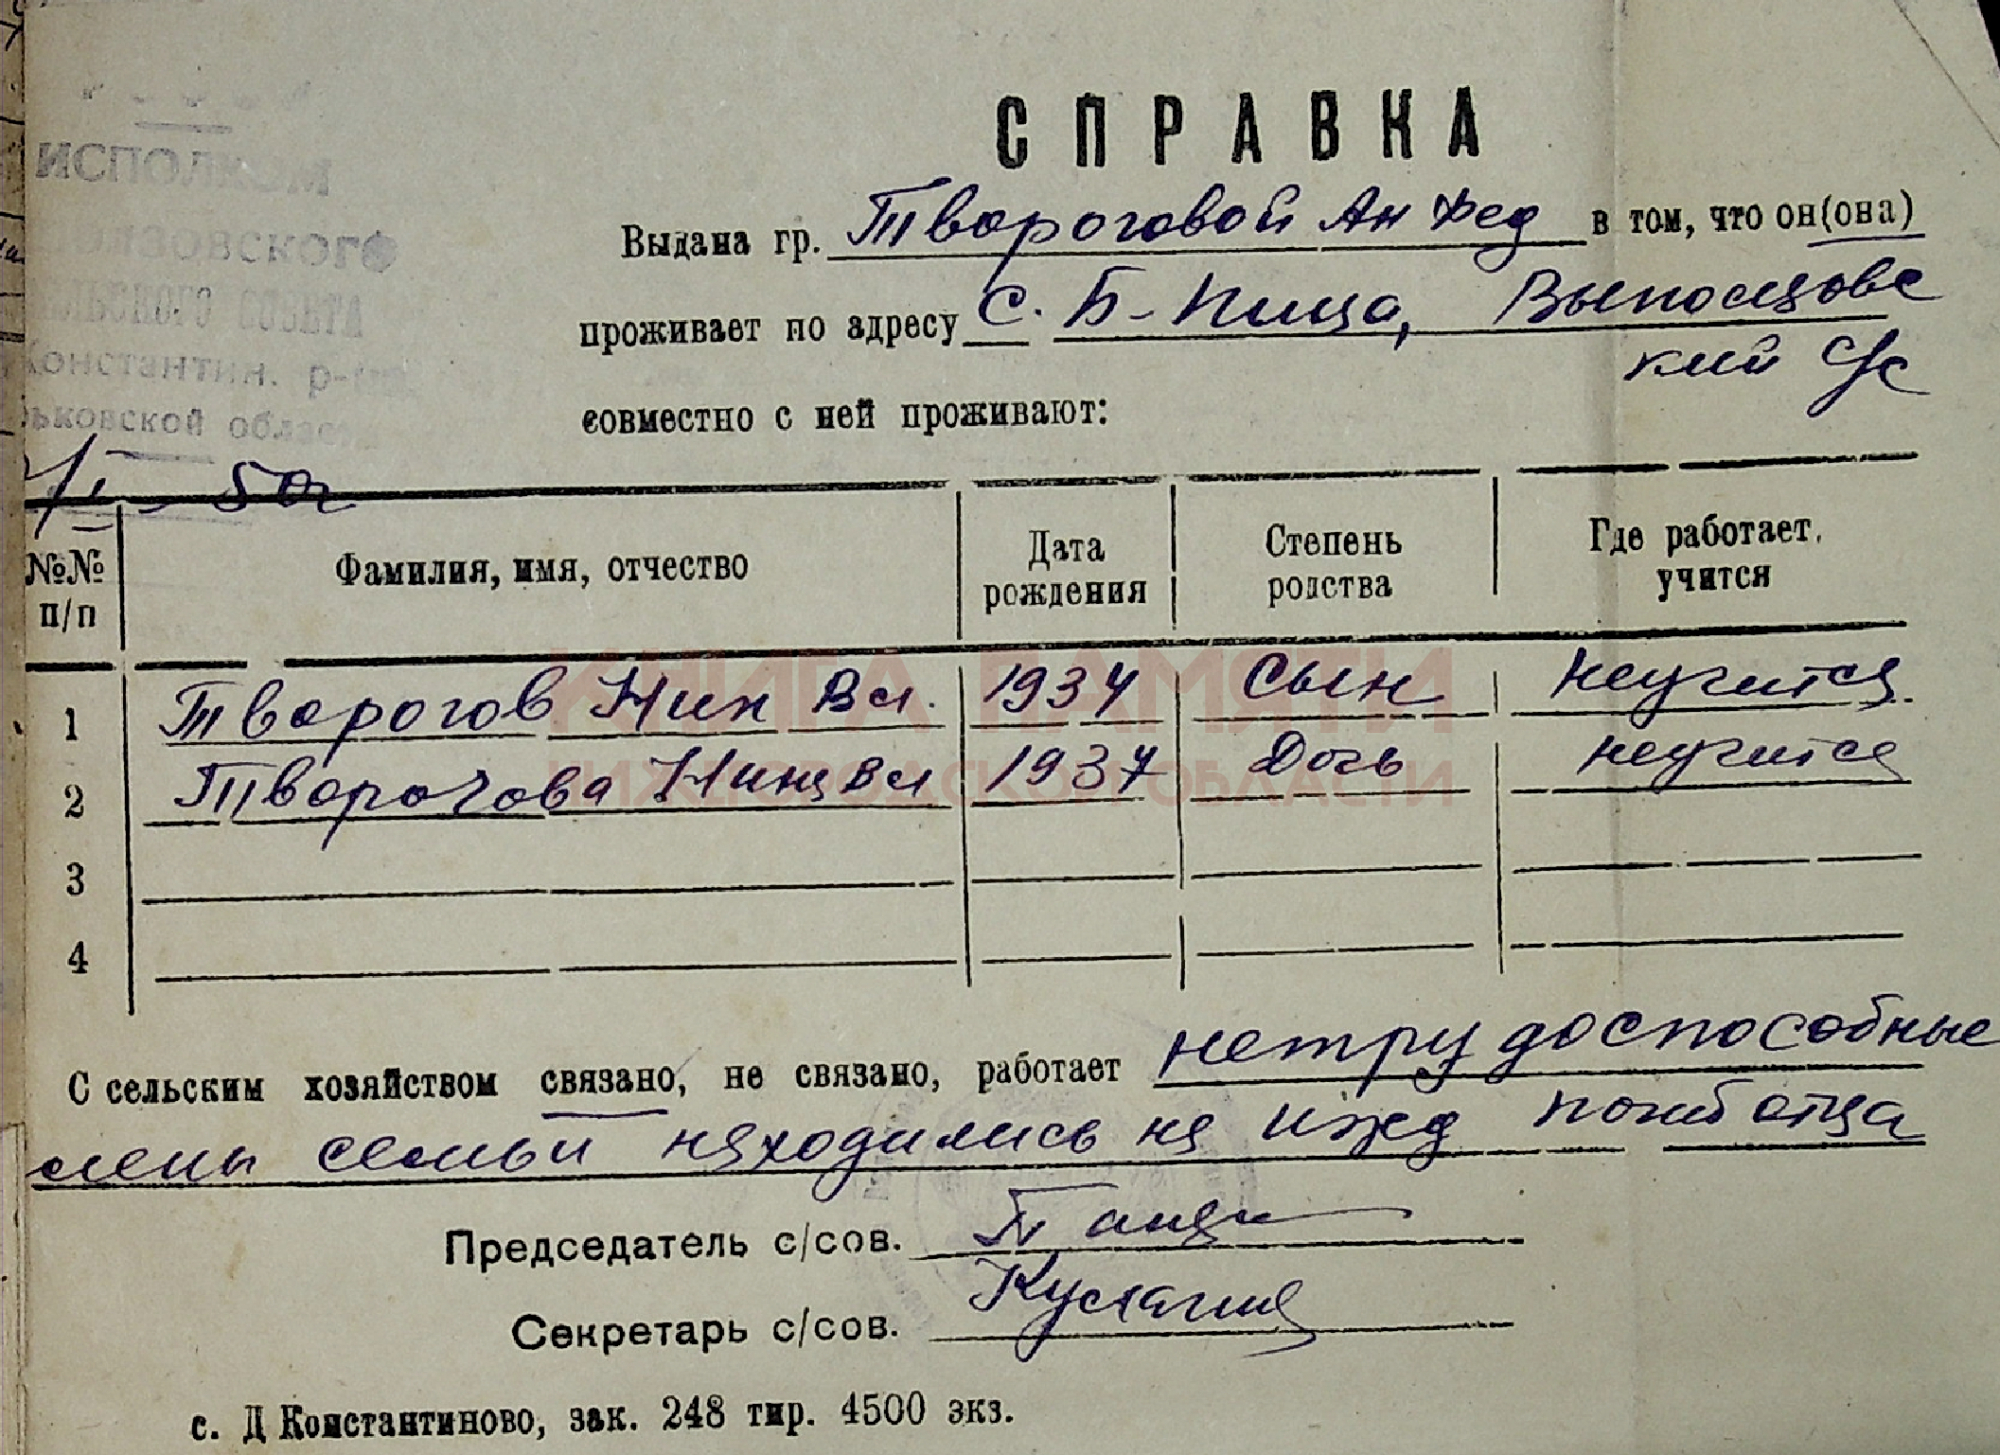 ИСПОЛКОМ
СОВЕТА
Константин. р-на
С П Р А В К А
Выдана гр. Твороговой Ан Фед в том, что он(она)
проживает по адресу с. Б-Пица,
кий с/с
совместно с ней проживают:
50г
№№ п/п Фамилия, имя, отчество Дата рождения Степень родства Где работает, учится
1 Творогов Ник Вл. 1934 Сын неучится
2 Творогова Нина Вл 1937 Дочь неучится
3
4
С сельским хозяйством связано, не связано, работает нетрудоспособные
члены семьи находились на ижд погиб отца
Председатель с/сов.
Секретарь с/сов.
с. Д Константиново, зак. 248 тир. 4500 экз.
КНИГА ПАМЯТИ
НИЖЕГОРОДСКОЙ ОБЛАСТИ